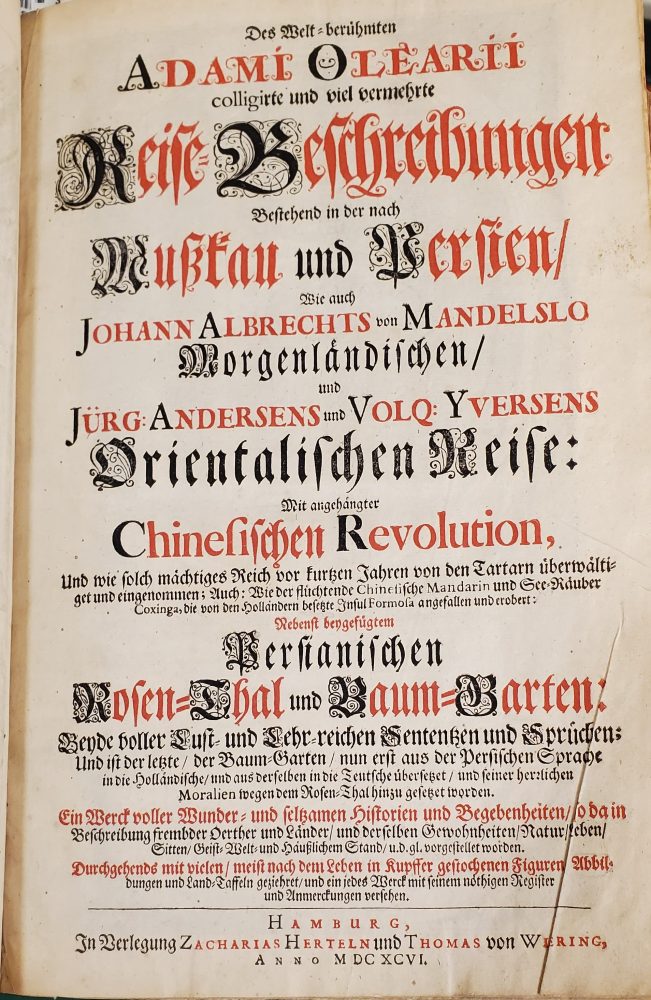 Des Welt-berühmten
ADAMI OLEARII
colligirte und viel vermehrte
Reise-Beschreibungen
Bestehend in der nach
Mußkau und Persien/
Wie auch
JOHANN ALBRECHTS von MANDELSLO
Morgenländischen/
und
JÜRG: ANDERSENS und VOLQ: YVERSENS
Orientalischen Reise:
Mit angehängter
Chinesischen Revolution,
Und wie solch mächtiges Reich vor kurtzen Jahren von den Tartarn überwälti-
get und eingenommen; Auch: Wie der flüchtende Chinesische Mandarin und See-Räuber
Coxinga, die von den Holländern besetzte Insul Formosa angefallen und erobert:
Nebenst beygefügtem
Persianischen
Rosen-Thal und Baum-Garten:
Beyde voller Lust- und Lehr-reichen Sententzen und Sprüchen;
Und ist der letzte/ der Baum-Garten/ nun erst aus der Persischen Sprache
in die Holländische/ und aus derselben in die Teutsche übersetzet/ und feiner herzlichen
Moralien wegen dem Rosen-Thal hinzu gesetzet worden.
Ein Werck voller Wunder- und seltzamen Historien und Begebenheiten/ so da in
Beschreibung frembder Oerther und Länder/ und derselben Gewohnheiten/ Natur/ Leben/
Sitten/ Geist- Welt- und Häußlichem Stand/ u.d.gl. vorgestellet worden.
Durchgehends mit vielen/ meist nach dem Leben in Kupffer gestochenen Figuren/ Abbil-
dungen und Land-Taffeln geziehret/ und ein jedes Werck mit seinem nöthigen Register
und Anmerckungen versehen.
HAMBURG,
In Verlegung ZACHARIAS HERTELN und THOMAS von WIERING,
ANNO MDCXCVI.